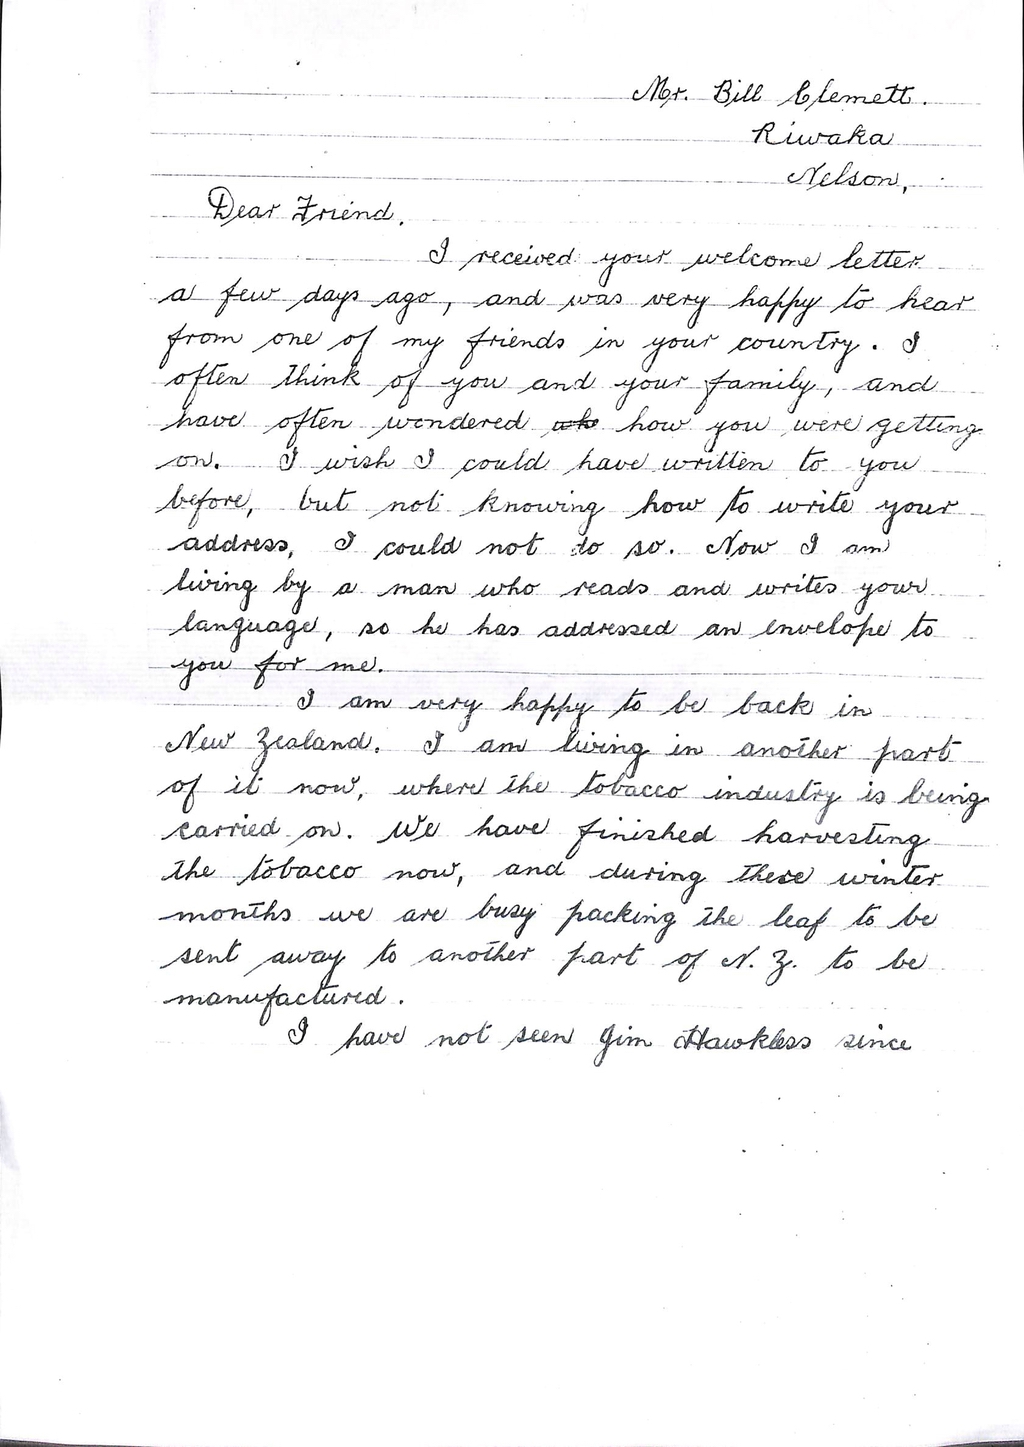 Mr. Bill Clemett.
Riwaka
Nelson,
Dear Friend.
I received your welcome letter
a few days ago, and was very happy to hear
from one of my friends in your country. I
often think of you and your family, and
have often wondered how you were getting
on. I wish I could have written to you
before, but not knowing how to write your
address, I could not do so. Now I am
living by a man who reads and writes your
language, so he has addressed an envelope to
you for me.
I am very happy to be back in
New Zealand. I am living in another part
of it now, where the tobacco industry is being
carried on. We have finished harvesting
the tobacco now, and during these winter
months we are busy packing the leaf to be
sent away to another part of N. Z. to be
manufactured.
I have not seen Jim Hawkless since